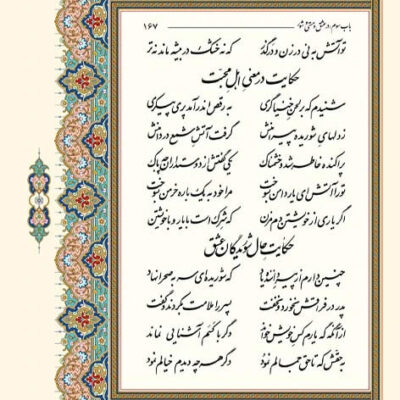 باب سوم در عشق و مستی و شور ۱۶۷
تو آتش به نی در زن و درگذر که نه خشک در بیشه ماند نه تر
حکایت در معنی اهل محبت
شنیدم که بر لحن خنیاگری به رقص اندر آمد پری پیکری
ز دلهای شوریده پیرامنش گرفت آتش شمع در دامنش
پراکنده خاطر شد و خشمناک یکی گفتش از دوستداران چه باک
تو را آتش ای یار دامن بسوخت مرا خود به یک باره خرمن بسوخت
اگر یاری از خویشتن دم مزن که شرک است با یار و با خویشتن
حکایت حال شوریدگان عشق
چنین دارم از پیر داننده یاد که شوریده‌ای سر به صحرا نهاد
پدر در فراقش نخورد و نخفت پسر را ملامت بکردند و گفت
از آنگه که یارم کس خویش خواند دگر با کسم آشنایی نماند
به حقش که تا حق جمالم نمود دگر هر چه دیدم خیالم نمود